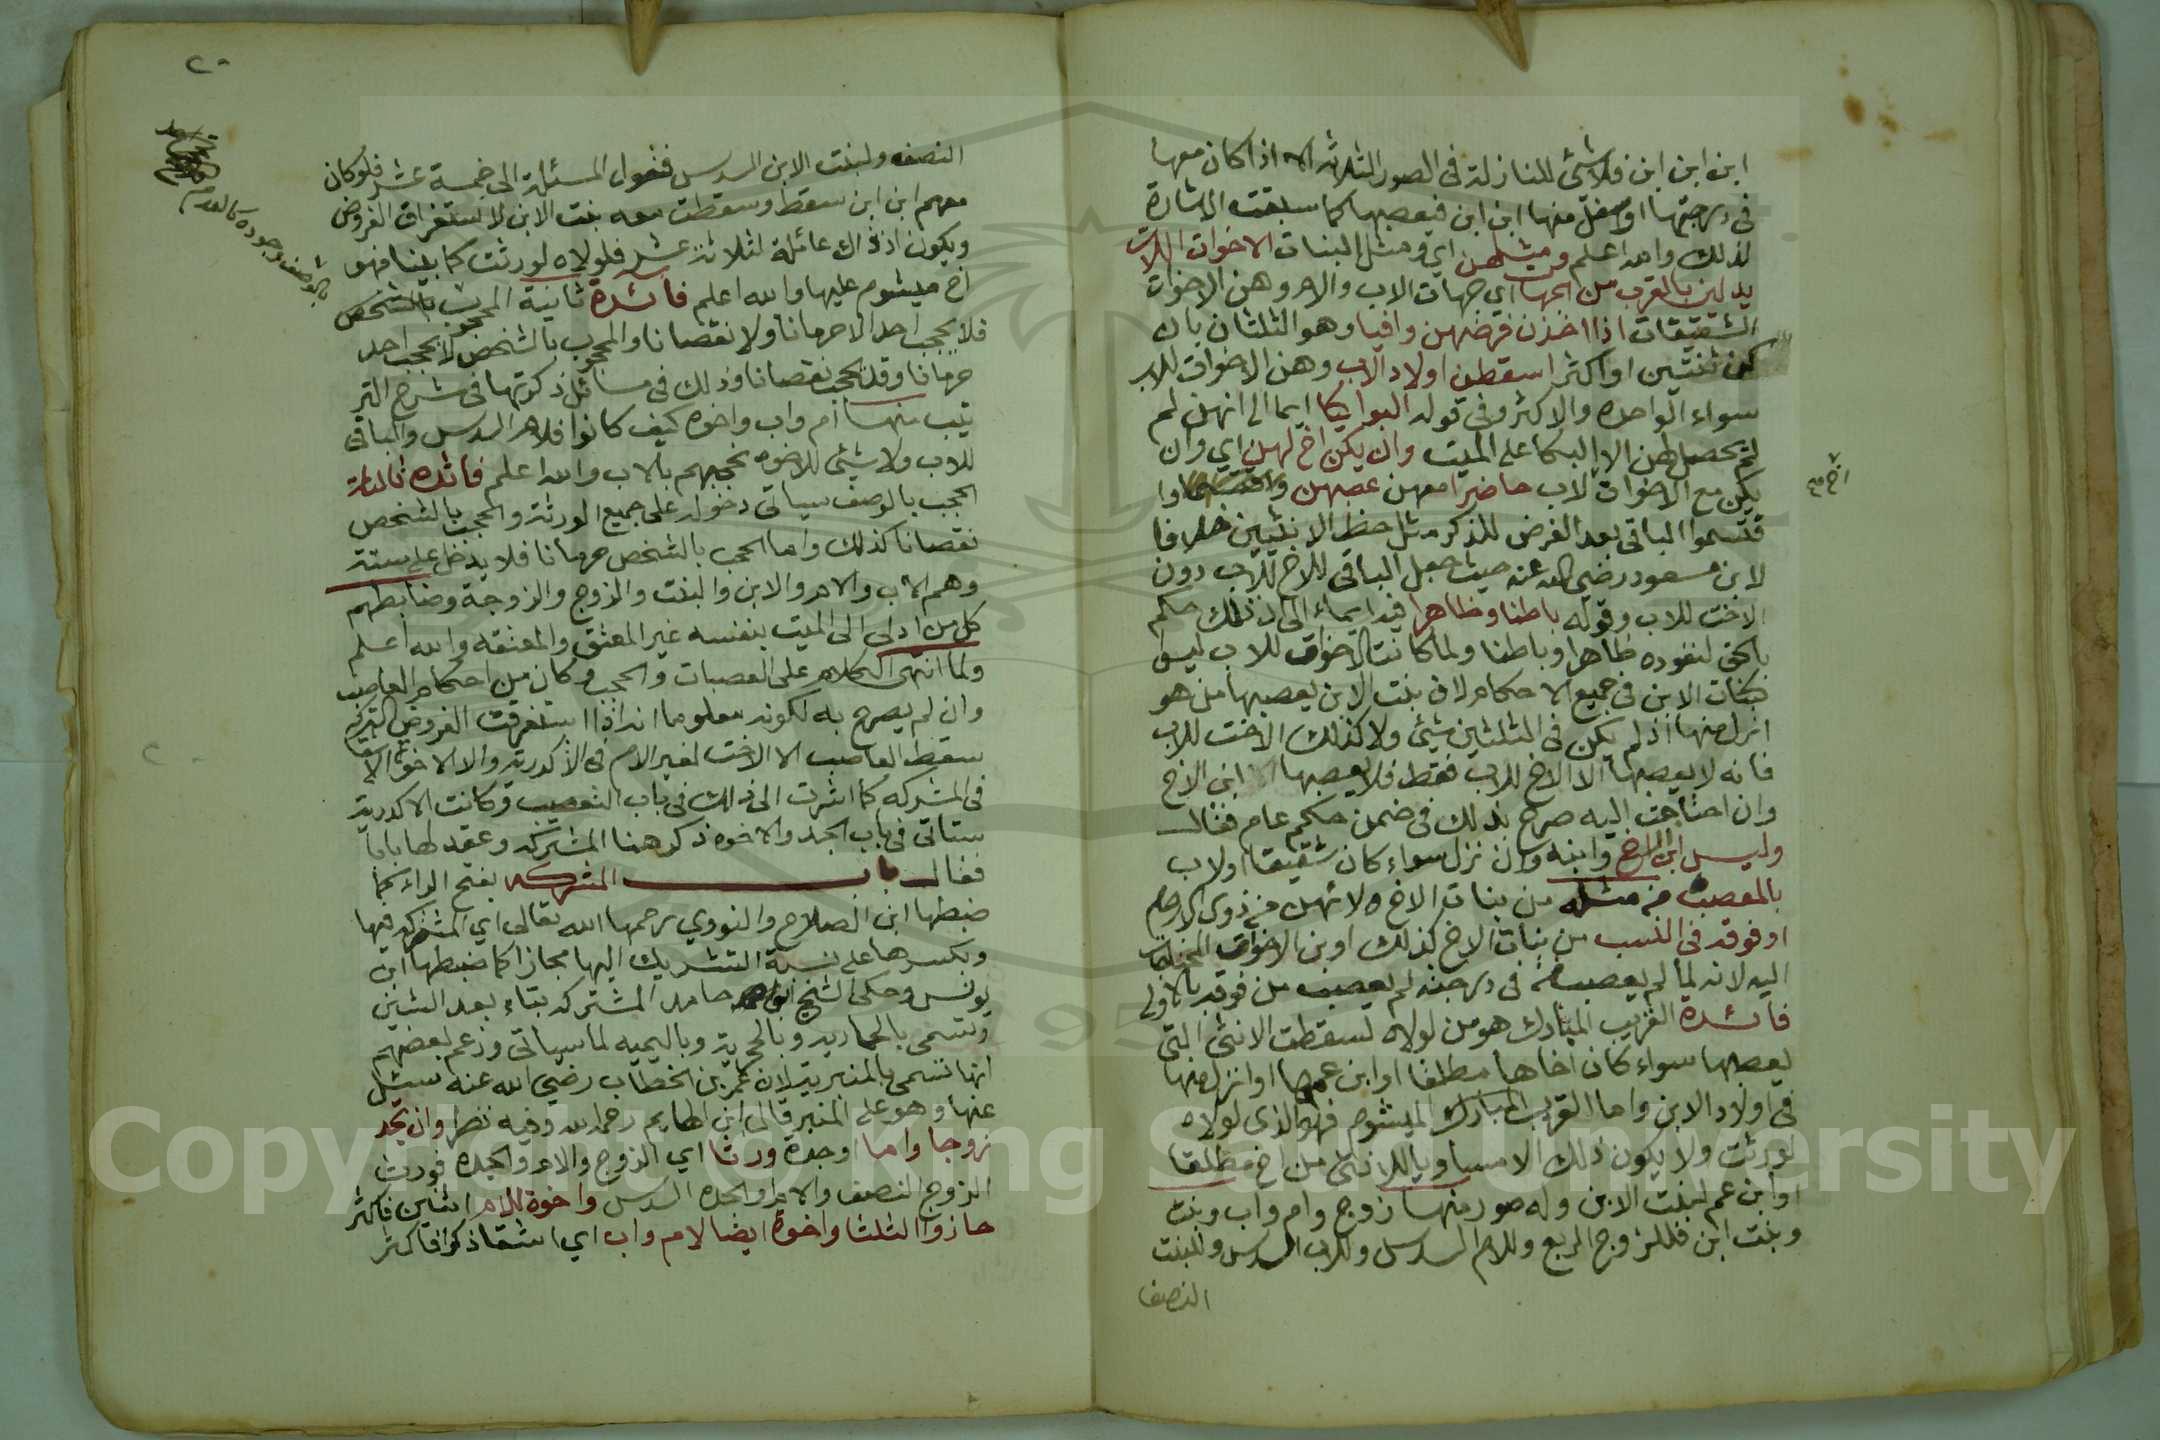 ابن ابن ابن فلا شئ للنازلة في الصور الثلاثه الا اذا كان معها
في درجتها او اسفل منها ابن ابن فيعصبها كما سبقت الاشارة
لذلك والله اعلم ومثلهن اي ومثل البنات الاخوات اللات
يدلين بالقرب من الجهات اي جهات الاب والام وهن الاخوات
الشقيقات اذا اخذن فرضهن وافيا وهو الثلثان بان
كن ثنتين او اكثر اسقطن اولاد الاب وهن الاخوات للاب
سواء الواحده والاكثر وفي قوله البواكيا ايما الى انهن لم
يحصل لهن الا البكا على الميت وان يكن اخ لهن اي وان
يكن مع الاخوات لاب حاضرا معهن عصبهن
قتسموا الباقى بعد الفرض للذكر مثل حظ الانثيين خلافا
لابن مسعود رضي الله عنه حيث جعل الباقى للاخ للاب دون
الاخت للاب وقوله باطنا وظاهرا فيه ايماء الى ان ذلك حكم
بالحق لنفوذه ظاهرا وباطنا ولما كانت الاخوات للاب ليس
كبنات الابن في جميع الاحكام لان بنت الابن يعصبها من هو
انزل منها اذ لم يكن في الثلثين شئ ولا كذلك الاخت للاب
فانه لا يعصبها الا الاخ للاب فقط فلا يعصبها ابن الاخ
وان احتاجت اليه صرح بذلك في ضمن حكم عام فقال
وليس ابن الاخ وابنه وان نزل سواء كان شقيقا او لاب
بالمعصب من مثله من بنات الاخ ولانهن من ذوي الارحام
او فوقه في النسب من بنات الاخ كذلك او بن الاخوات المحتاجات
اليه لانه لما لم يعصب من في درجته لم يعصب من فوقه بالاولى
فائدة القريب المبارك هو من لولاه لسقطت الانثى التي
يعصبها سواء كان اخاها مطلقا او ابن عمها او انزل منها
في اولاد الابن واما القريب المبارك الميشوم فهو الذي لولاه
لورثت ولا يكون ذلك الا مساويا للانثى من اخ مطلقا
او ابن عم لبنت الابن وله صور منها زوج وام واب وبنت
وبنت ابن فللزوج الربع وللام السدس وللاب السدس وللبنت
النصف
النصف ولبنت الابن السدس فتعول المسئلة الى خمسة عشر فلو كان
معهم ابن ابن سقط وسقطت معه بنت الابن لاستغراق الفروض
ويكون اذ ذاك عائلة لثلاثة عشر فلولاه لورثت كما بينا فهو
اخ ميشوم عليها والله اعلم فائدة ثانية المحجوب بالشخص
فلا يحجب احد الا حرمانا ولا نقصانا والمحجوب بالشخص لا يحجب احد
حرمانا وقد يحجب نقصانا وذلك في مسائل ذكرتها في شرح التر
تيب منها ام واب واخوه كيف كانوا فللام السدس والباقى
للاب ولا شئ للاخوه لحجبهم بالاب والله اعلم فائده ثالثة
الحجب بالوصف سياتى دخوله على جميع الورثة والحجب بالشخص
نقصانا كذلك واما الحجب بالشخص حرمانا فلا يدخل على ستة
وهم الاب والام والابن والبنت والزوج والزوجة وضابطهم
كل من ادلى الى الميت بنفسه غير المعتق والمعتقه والله اعلم
ولما انتهى الكلام على العصبات والحجب وكان من احكام العاصب
وان لم يصرح به لكونه معلوما انه اذا استغرقت الفروض التركة
سقط العاصب الا الاخت لغير الام في الاكدرية والا الاخوة الاشقا
في المشركه كما اشرت الى ذلك في باب التعصيب وكانت الاكدرية
ستاتى في باب الجد والاخوه ذكر هنا المشتركه وعقد لها بابا
فقال باب المشركه بفتح الراء كما
ضبطها ابن الصلاح والنووي رحمهما الله تعالى اي المشترك فيها
وبكسرها على نسبة التشريك اليها مجازا كما ضبطها ابن
يونس وحكى الشيخ ابو حامد المشتركه بتاء بعد الشين
وتسمى بالحماريه وبالحجرية وباليميه لما سياتى وزعم بعضهم
انها تسمى بالمنبرية لان عمر بن الخطاب رضي الله عنه سئل
عنها وهو على المنبر قال ابن الهايم رحمه الله وفيه نظر وان تجد
زوجا واما او جدة ورثا اي الزوج والام والجده فورث
الزوج النصف والام او الجده السدس واخوة للام اثنان فاكثر
حازوا الثلثا واخوة ايضا لام واب اي اشقا ذكر فاكثر